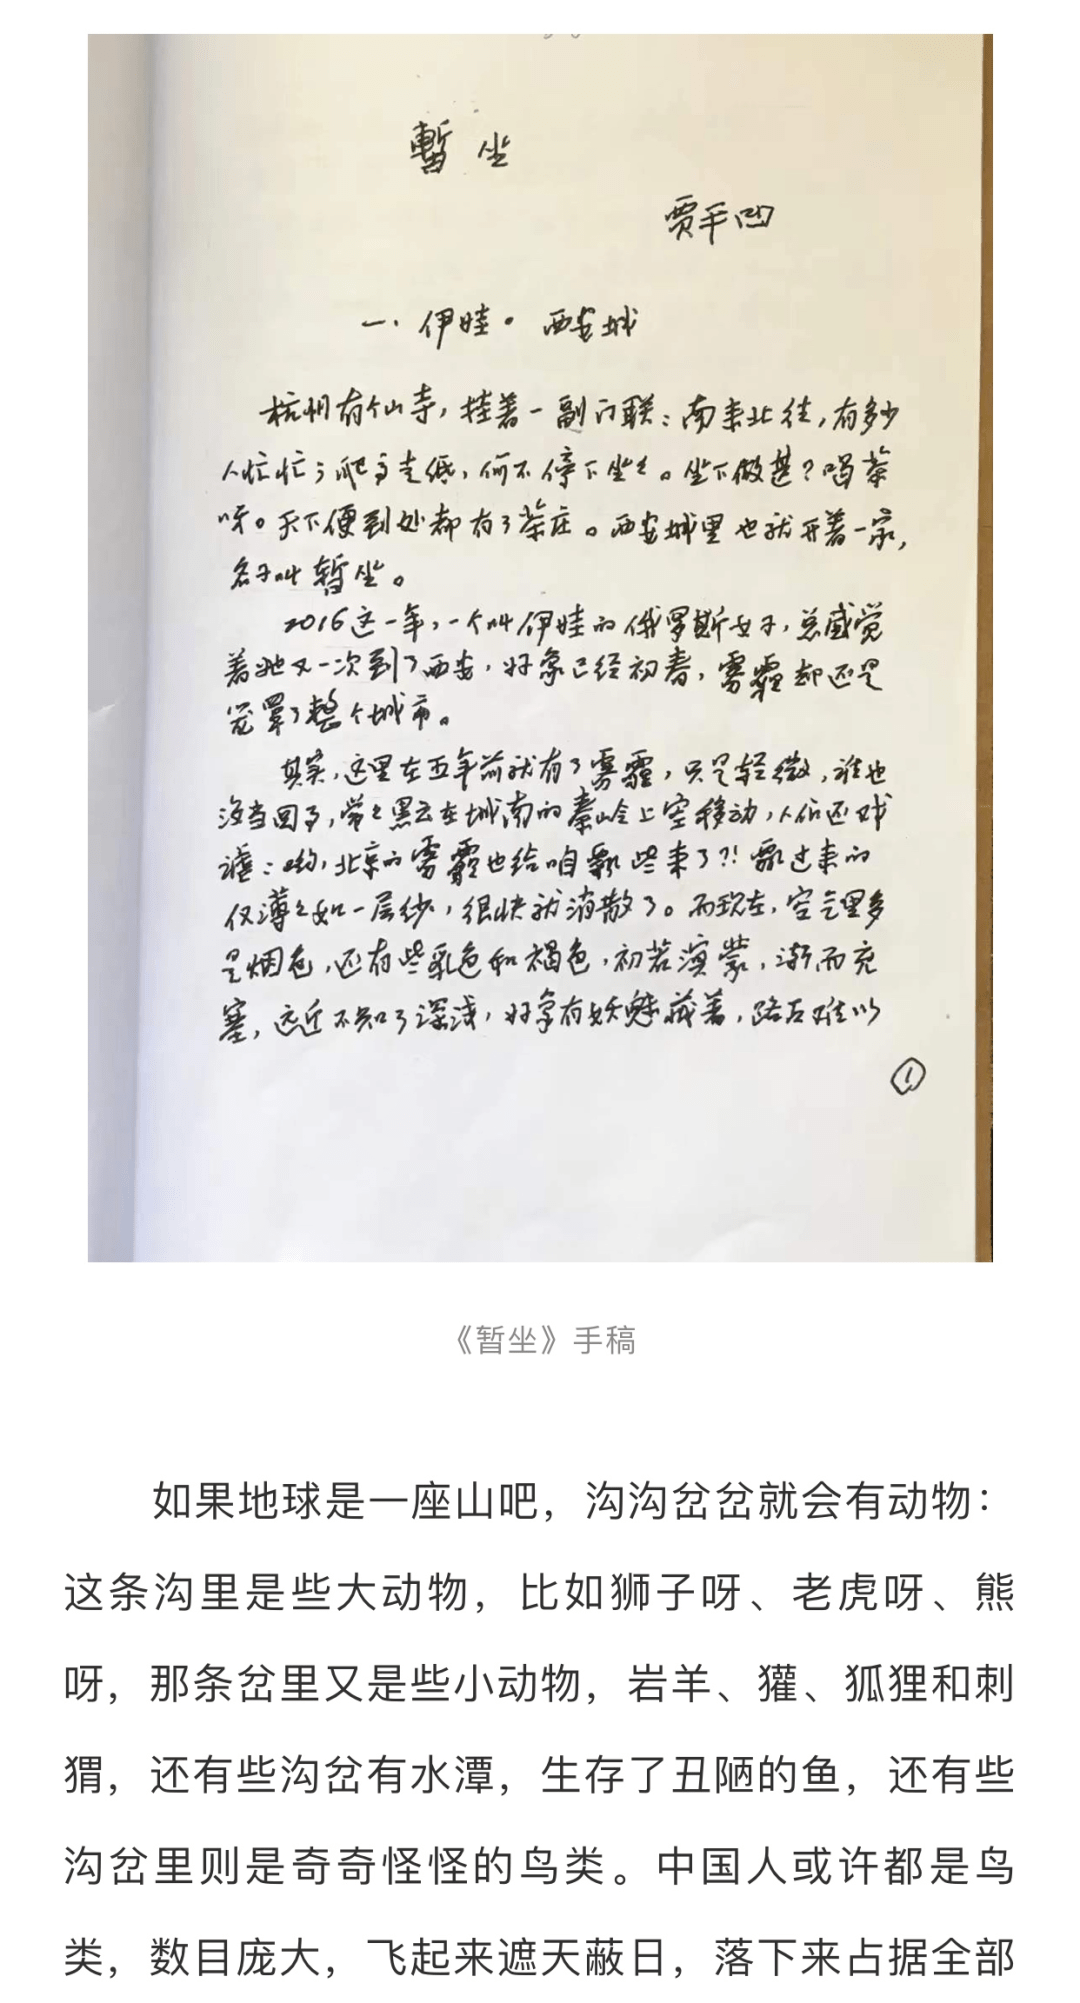 暫坐
贾平凹
一.伊娃·西安城
杭州有个山寺，挂着一副门联：南来北往，有多少
人忙忙；爬高走低，何不停下坐坐。坐下做甚？喝茶
呀。天下便到处都有了茶庄。西安城里也就开着一家，
名子叫暫坐。
2016这一年，一个叫伊娃的俄罗斯女子，总感觉
着她又一次到了西安，好象已经初春，雾霾却还是
笼罩了整个城市。
其实，这里在五年前就有了雾霾，只是轻微，谁也
没当回事，常々黑云在城南的秦岭上空移动，人们还戏
谑：哟，北京的雾霾也给咱飘些来了?！飘过来的
仅薄々如一层纱，很快就消散了。而现在，空气里多
是烟色，还有些乳色和褐色，初若溟蒙，渐而充
塞，远近不知了深浅，好象有妖魅藏着，路石难以
1
《暂坐》手稿
如果地球是一座山吧，沟沟岔岔就会有动物：
这条沟里是些大动物，比如狮子呀、老虎呀、熊
呀，那条岔里又是些小动物，岩羊、獾、狐狸和刺
猬，还有些沟岔有水潭，生存了丑陋的鱼，还有些
沟岔里则是奇奇怪怪的鸟类。中国人或许都是鸟
类，数目庞大，飞起来遮天蔽日，落下来占据全部